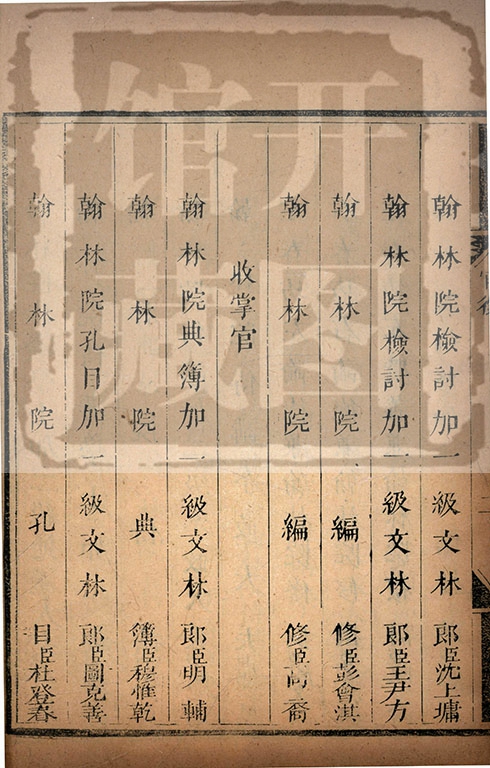 翰林院檢討加一級文林郎臣沈上墉
翰林院檢討加一級文林郎臣王尹方
翰林院編修臣彭會淇
翰林院編修臣
收掌官
翰林院典簿加一級文林郎臣明輔
翰林院典簿臣穆惟乾
翰林院孔目加一級文林郎臣圖克善
翰林院孔目臣杜登春
開
圖
館
藏